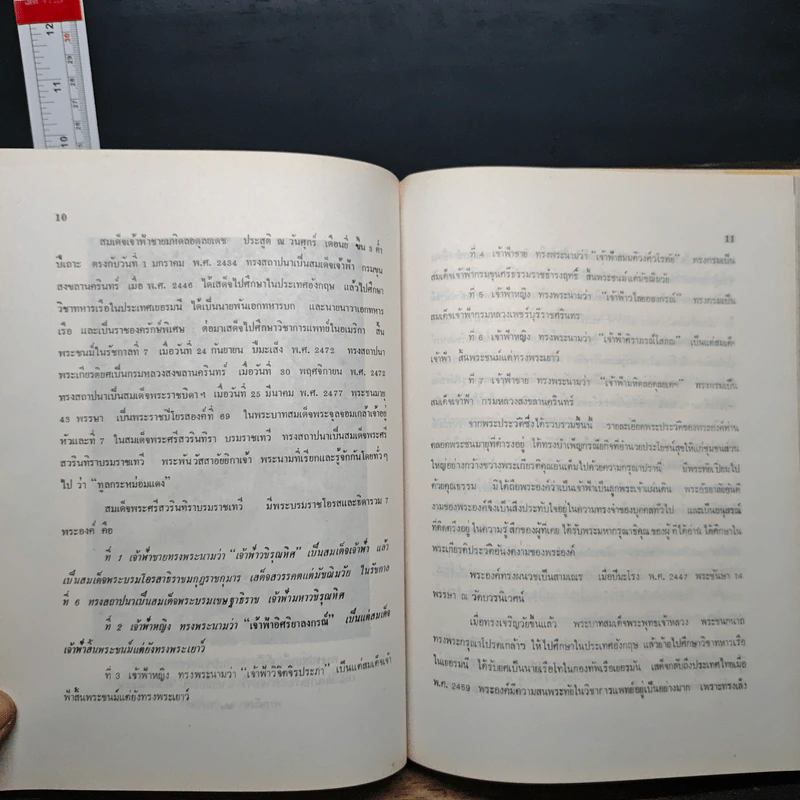 10
สมเด็จเจ้าฟ้าชายมหิดลอดุลยเดช ประสูติ ณ วันศุกร์ เดือนยี่ ขึ้น 3 ค่ำ
ปีเถาะ ตรงกับวันที่ 1 มกราคม พ.ศ. 2434 ทรงสถาปนาเป็นสมเด็จเจ้าฟ้า กรมขุน
สงขลานครินทร์ เมื่อ พ.ศ. 2446 ได้เสด็จไปศึกษาในประเทศอังกฤษ แล้วไปศึกษา
วิชาทหารเรือในประเทศเยอรมนี ได้เป็นนายพันเอกทหารบก และนายนาวาเอกทหาร
เรือ และเป็นราชองครักษ์พิเศษ ต่อมาเสด็จไปศึกษาวิชาการแพทย์ในอเมริกา สิ้น
พระชนม์ในรัชกาลที่ 7 เมื่อวันที่ 24 กันยายน ปีมะเส็ง พ.ศ. 2472 ทรงสถาปนา
พระเกียรติยศเป็นกรมหลวงสงขลานครินทร์ เมื่อวันที่ 30 พฤศจิกายน พ.ศ. 2472
ทรงสถาปนาเป็นสมเด็จพระราชบิดาฯ เมื่อวันที่ 25 มีนาคม พ.ศ. 2477 พระชนมายุ
43 พรรษา เป็นพระราชปิโยรสองค์ที่ 69 ในพระบาทสมเด็จพระจุลจอมเกล้าเจ้าอยู่
หัวและที่ 7 ในสมเด็จพระศรีสวรินทิรา บรมราชเทวี ทรงสถาปนาเป็นสมเด็จพระศรี
สวรินทิราบรมราชเทวี พระพันวัสสาอัยยิกาเจ้า พระนามที่เรียกและรู้จักกันโดยทั่วๆ
ไป ว่า “ทูลกระหม่อมแดง”
สมเด็จพระศรีสวรินทิราบรมราชเทวี มีพระบรมราชโอรสและธิดารวม 7
พระองค์ คือ
ที่ 1 เจ้าฟ้าชายทรงพระนามว่า “เจ้าฟ้าวชิรุณหิศ” เป็นสมเด็จเจ้าฟ้า แล้ว
เป็นสมเด็จพระบรมโอรสาธิราชมกุฎราชกุมาร เสด็จสวรรคตแต่มัชฌิมวัย ในรัชกาล
ที่ 6 ทรงสถาปนาเป็นสมเด็จพระบรมเชษฐาธิราช เจ้าฟ้ามหาวชิรุณหิศ
ที่ 2 เจ้าฟ้าหญิง ทรงพระนามว่า “เจ้าฟ้าอิศริยาลงกรณ์” เป็นแต่สมเด็จ
เจ้าฟ้าสิ้นพระชนม์แต่ยังทรงพระเยาว์
ที่ 3 เจ้าฟ้าหญิง ทรงพระนามว่า “เจ้าฟ้าวิจิตจิรประภา” เป็นแต่สมเด็จเจ้า
ฟ้าสิ้นพระชนม์แต่ยังทรงพระเยาว์
11
ที่ 4 เจ้าฟ้าชาย ทรงพระนามว่า “เจ้าฟ้าสมมติวงศ์วโรทัย” ทรงกรมเป็น
สมเด็จเจ้าฟ้ากรมขุนศรีธรรมราชธำรงฤทธิ์ สิ้นพระชนม์แต่มัชฌิมวัย
ที่ 5 เจ้าฟ้าหญิง ทรงพระนามว่า “เจ้าฟ้าวไลยอลงกรณ์” ทรงกรมเป็น
สมเด็จเจ้าฟ้ากรมหลวงเพชรบุรีราชศิรินทร
ที่ 6 เจ้าฟ้าหญิง ทรงพระนามว่า “เจ้าฟ้าศิราภรณ์โสภณ” เป็นแต่สมเด็จ
เจ้าฟ้า สิ้นพระชนม์แต่ทรงพระเยาว์
ที่ 7 เจ้าฟ้าชาย ทรงพระนามว่า “เจ้าฟ้ามหิดลอดุลยเดช” ทรงกรมเป็น
สมเด็จเจ้าฟ้า กรมหลวงสงขลานครินทร์
จากพระประวัติซึ่งได้รวบรวมขึ้นนี้ รายละเอียดพระประวัติของพระองค์ท่าน
ตลอดพระชนมายุที่ดำรงอยู่ ได้ทรงบำเพ็ญกรณียกิจที่อำนวยประโยชน์สุขให้แก่ชุมชนส่วน
ใหญ่อย่างกว้างขวางพระเกียรติคุณอันเต็มไปด้วยความกรุณาปรานี มีพระทัยเปี่ยมไป
ด้วยคุณธรรม มิได้ถือพระองค์ว่าเป็นเจ้าฟ้าเป็นลูกพระเจ้าแผ่นดิน พระอัธยาศัยอันดี
งามของพระองค์จึงเป็นสิ่งประทับใจอยู่ในความทรงจำของบุคคลทั่วไป และเป็นอนุสรณ์
ที่ติดตรึงอยู่ ในความรู้สึกของผู้ที่เคย ได้รับพระมหากรุณาธิคุณ ของผู้ที่ได้อ่าน ได้ศึกษาใน
พระเกียรติประวัติอันงดงามของพระองค์
พระองค์ทรงผนวชเป็นสามเณร เมื่อปีมะโรง พ.ศ. 2447 พระชันษา 14
พรรษา ณ วัดบวรนิเวศน์
เมื่อทรงเจริญวัยขึ้นแล้ว พระบาทสมเด็จพระพุทธเจ้าหลวง พระชนกนาถ
ทรงพระกรุณาโปรดเกล้าฯ ให้ไปศึกษาในประเทศอังกฤษ แล้วย้ายไปศึกษาวิชาทหารเรือ
ในเยอรมนี ได้รับยศเป็นนายเรือโทในกองทัพเรือเยอรมัน เสด็จกลับถึงประเทศไทยเมื่อ
พ.ศ. 2459 พระองค์มีความสนพระทัยในวิชาการแพทย์อยู่เป็นอย่างมาก เพราะทรงเล็ง